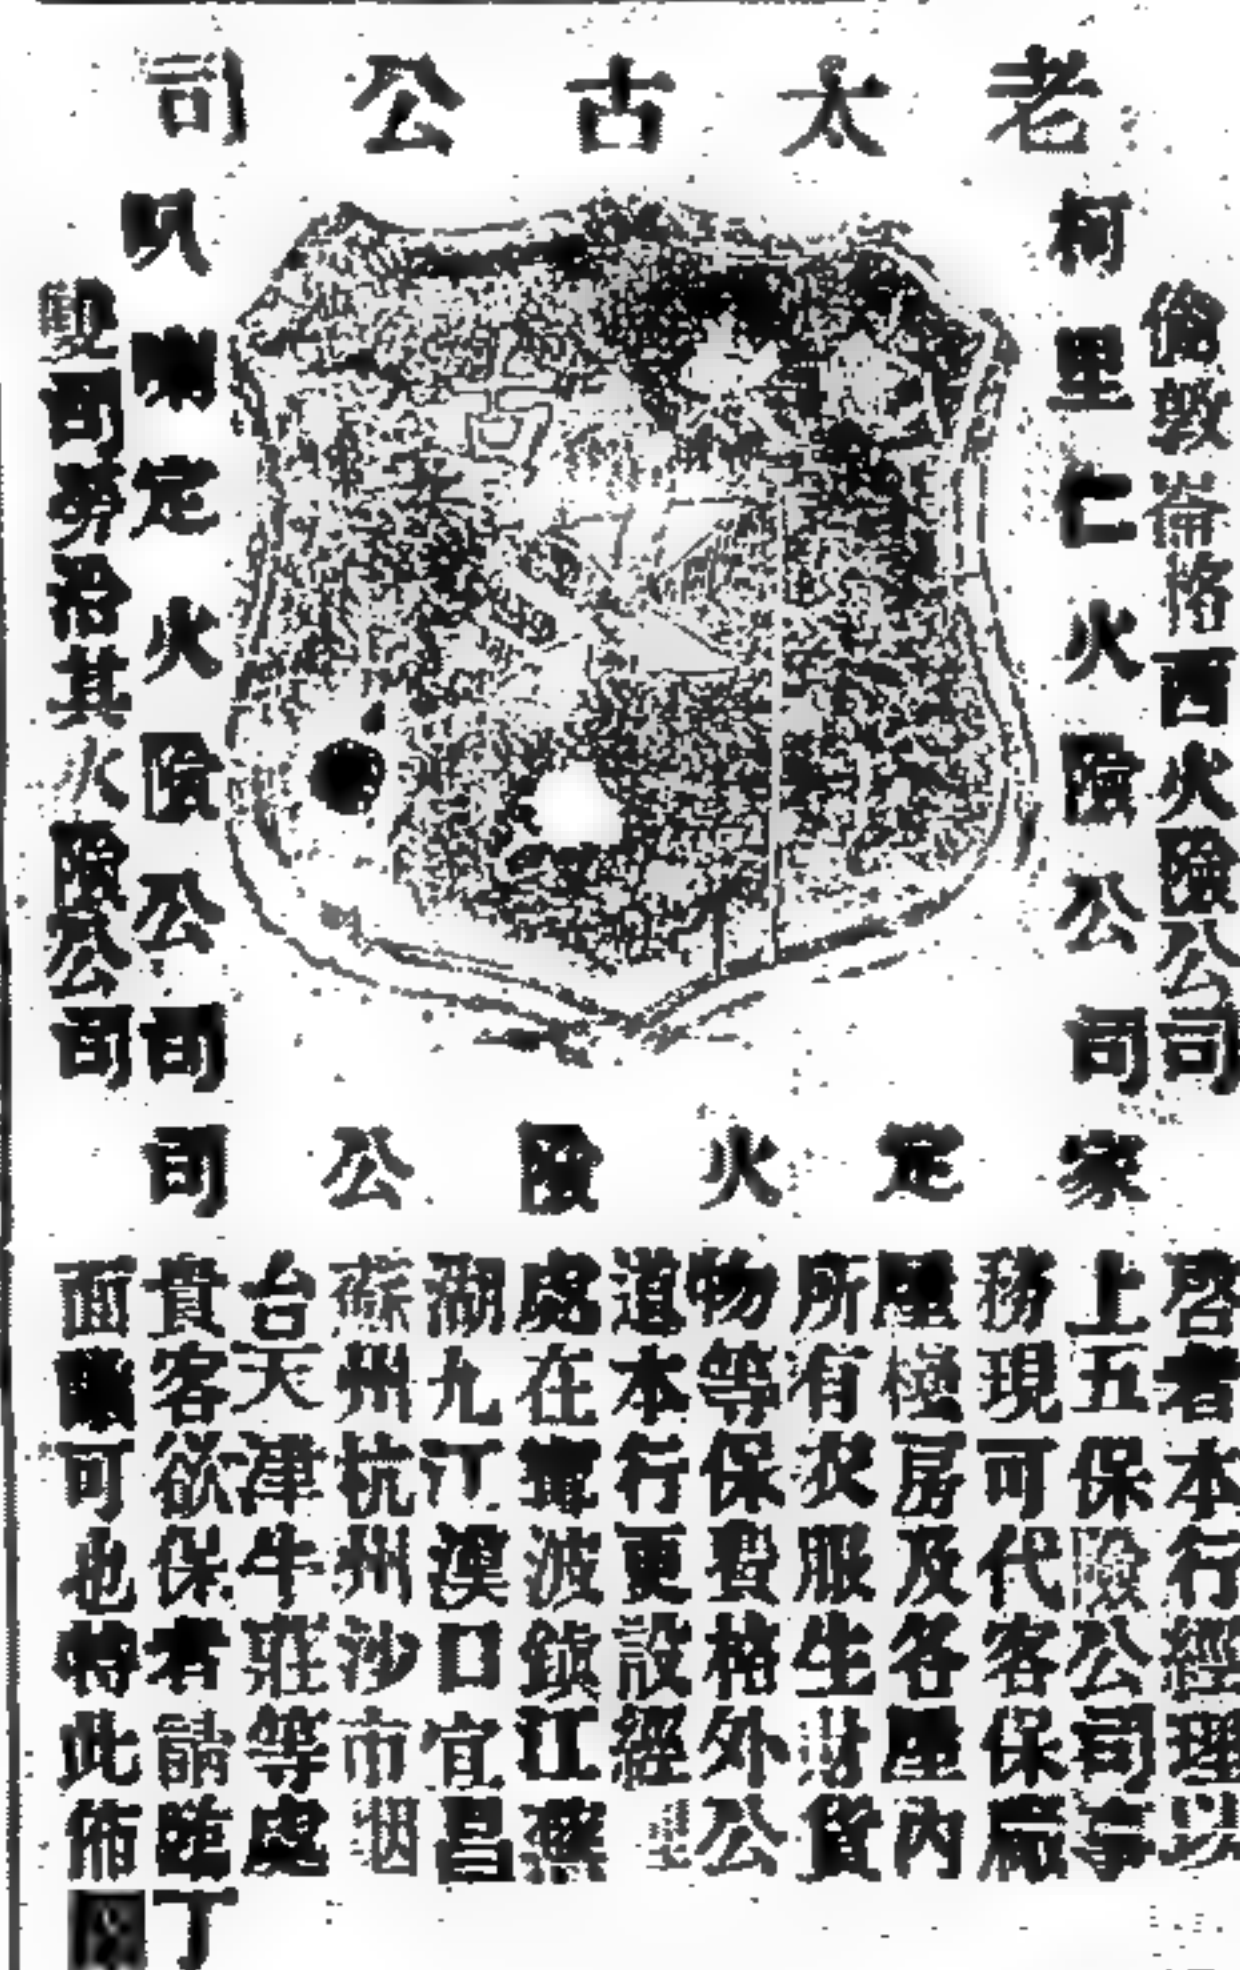 老太古公司
倫敦崙恪西火險公司
柯里仁火險公司
定火險公司
司勞洽其火險公司
家定火險公司
啓者本行經理以
上五保險公司事
務現可代客保廠
房及各座內
所有衣服生財貨
物等保費格外公
道本行更設經理
處在寗波鎮江蕪
湖九江漢口宜昌
蘇州杭州沙市烟
台天津牛莊等處
貴客欲保者請臨丁
面可也特此佈